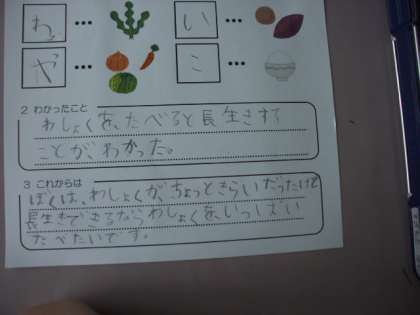 わ … い …
や … こ …
2 わかったこと
わしょくを、たべると長生きする
ことが、わかった。
3 これからは
ぼくは、わしょくが、ちょっときらいだったけど
長生きできるならわしょくを、いっぱい
たべたいです。